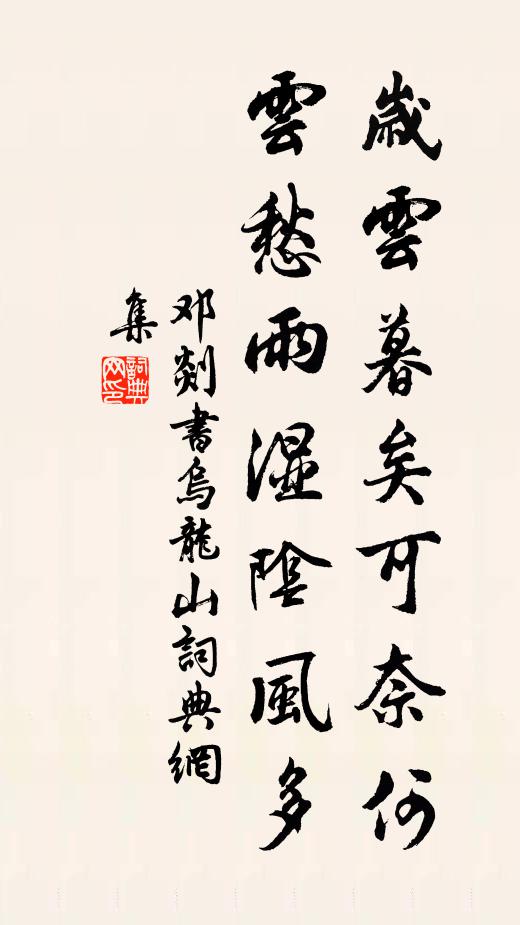 歲雲暮矣可奈何
雲愁雨濕陰風多
邓剡書烏龍山詞典網
集
詞典
网印